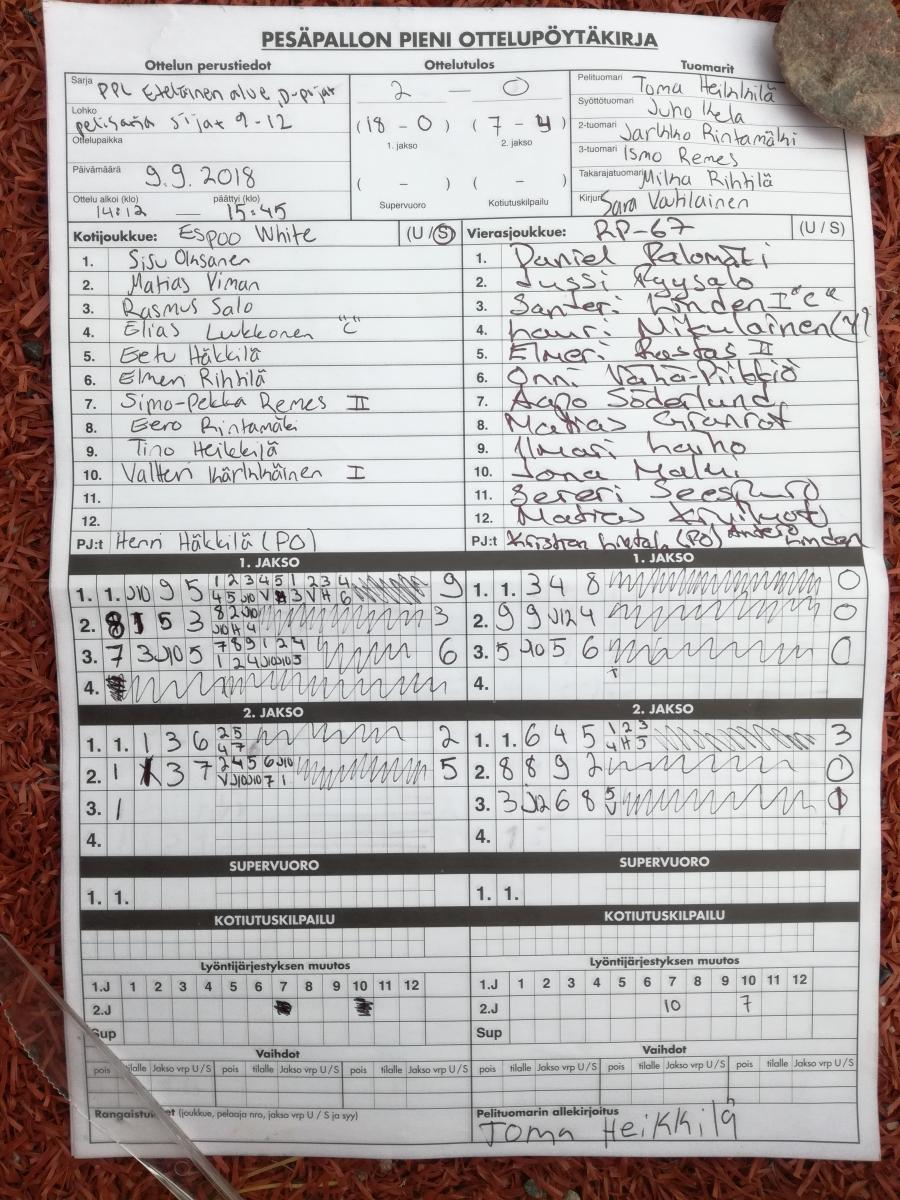 PESÄPALLON PIENI OTTELUPÖYTÄKIRJA
Ottelun perustiedot
Ottelutulos
Tuomarit
Sarja PPL Eteläinen alue D-pojat
Lohko pelisarja sijat 9-12
Ottelupaikka
Päivämäärä 9.9.2018
Ottelu alkoi (klo) päättyi (klo)
14:12 — 15:45
2 — 0
(18 - 0) (7 - 4)
1. jakso 2. jakso
( - ) ( - )
Supervuoro Kotiutuskilpailu
Pelituomari Toma Heikkilä
Syöttötuomari Juho Ikela
2-tuomari Jarkko Rintamäki
3-tuomari Ismo Remes
Takarajatuomari Milka Rihtilä
Kirjuri Sara Vatilainen
Kotijoukkue: ESPOO White (U / S)
1. Sisu Oksanen
2. Matias Viman
3. Rasmus Salo
4. Elias Lukkonen "C"
5. Eetu Häkkilä
6. Elmeri Rihtilä
7. Simo-Pekka Remes II
8. Eero Rintamäki
9. Tino Heikkilä
10. Valtteri Kärkkäinen I
11.
12.
PJ:t Henri Häkkilä (PO)
Vierasjoukkue: RP-67 (U / S)
1. Daniel Palomäki
2. Jussi Kyysalo
3. Santeri Linden I "C"
4. Lauri Mikulainen
5. Elmeri Rastas II
6. Onni Vähä-Piikkiö
7. Aapo Söderlund
8. Matias Granrot
9. Ilmari Laiho
10. Jona Malmi
11.
12. Matias
PJ:t (PO) Antero Linden
1. JAKSO
1. 1. J10 9 5 9
2. 5 3 3
3. 7 3 J10 5 6
4.
1. JAKSO
1. 1. 3 4 8 0
2. 9 9 J12 4 0
3. 5 J10 5 6 0
4.
2. JAKSO
1. 1. 1 3 6 2 5 4 7 2
2. 1 3 7 5
3. 1
4.
2. JAKSO
1. 1. 6 4 5 1 2 3 4 H 5 3
2. 8 8 9 2 0
3. 3 J12 6 8 5 V 1
4.
SUPERVUORO
1. 1.
SUPERVUORO
1. 1.
KOTIUTUSKILPAILU
KOTIUTUSKILPAILU
Lyöntijärjestyksen muutos
1.J 1 2 3 4 5 6 7 8 9 10 11 12
2.J
Sup
Lyöntijärjestyksen muutos
1.J 1 2 3 4 5 6 7 8 9 10 11 12
2.J 10 7
Sup
Vaihdot
pois tilalle Jakso vrp U / S pois tilalle Jakso vrp U / S pois tilalle Jakso vrp U / S
Vaihdot
pois tilalle Jakso vrp U / S pois tilalle Jakso vrp U / S pois tilalle Jakso vrp U / S
(joukkue, pelaaja nro, jakso vrp U / S ja syy)
Pelituomarin allekirjoitus
Toma Heikkilä